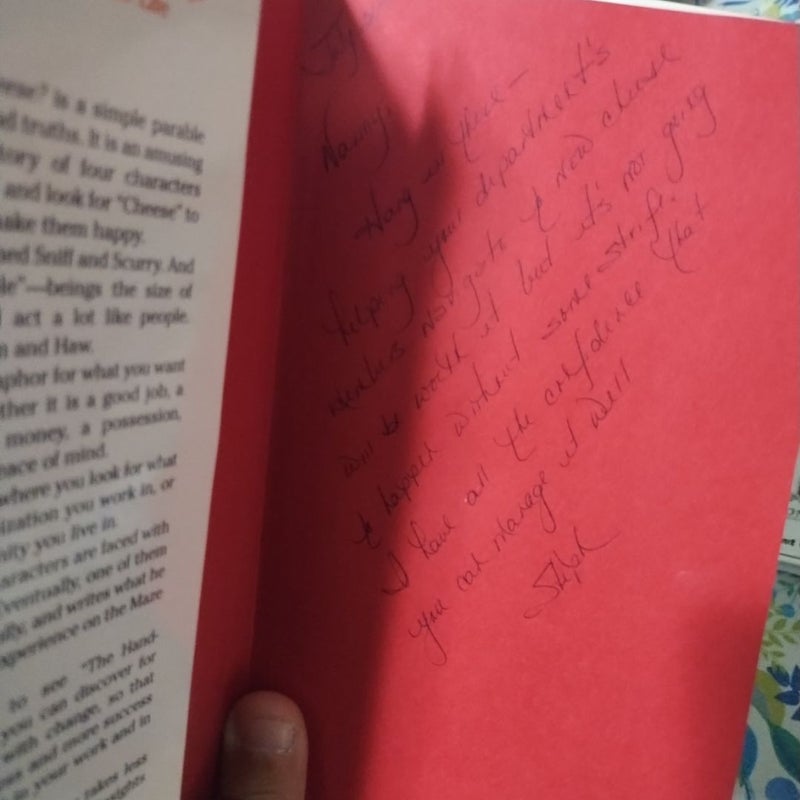 Life
Cheese? is a simple parable
truths. It is an amusing
story of four characters
and look for "Cheese" to
make them happy.
named Sniff and Scurry. And
—beings the size of
act a lot like people.
and Haw.
metaphor for what you want
whether it is a good job, a
money, a possession,
peace of mind.
where you look for what
organization you work in, or
you live in.
characters are faced with
Eventually, one of them
and writes what he
experience on the Maze
to see "The Hand-
you can discover for
with change, so that
and more success
in your work and in
takes less
insights
Nanny,
Hang in there—
helping your department's
members navigate to new cheese
will be worth it but it's not going
to happen without some strife.
I have all the confidence that
you can manage it well
Steph